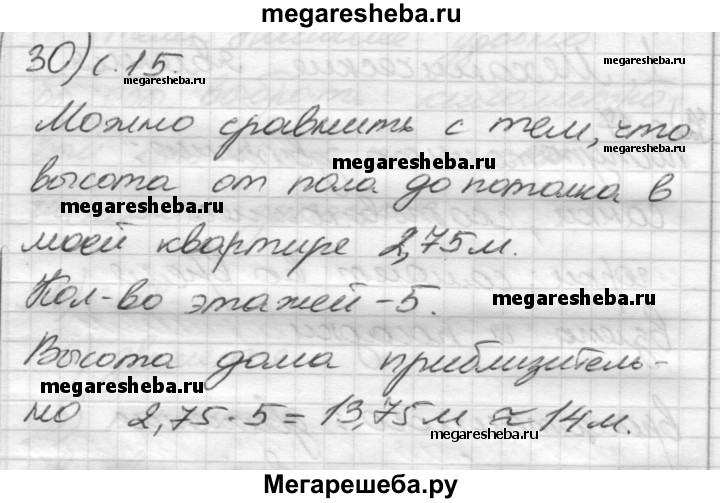 megaresheba.ru
30) с. 15.
megaresheba.ru
megaresheba.ru
Можно сравнить с тем, что
megaresheba.ru
высота от пола до потолка в
megaresheba.ru
моей квартире 2,75 м.
Кол-во этажей - 5.
megaresheba.ru
Высота дома приблизитель-
megaresheba.ru
но 2,75 · 5 = 13,75 м ≈ 14 м.
megaresheba.ru
Мегарешеба.ру